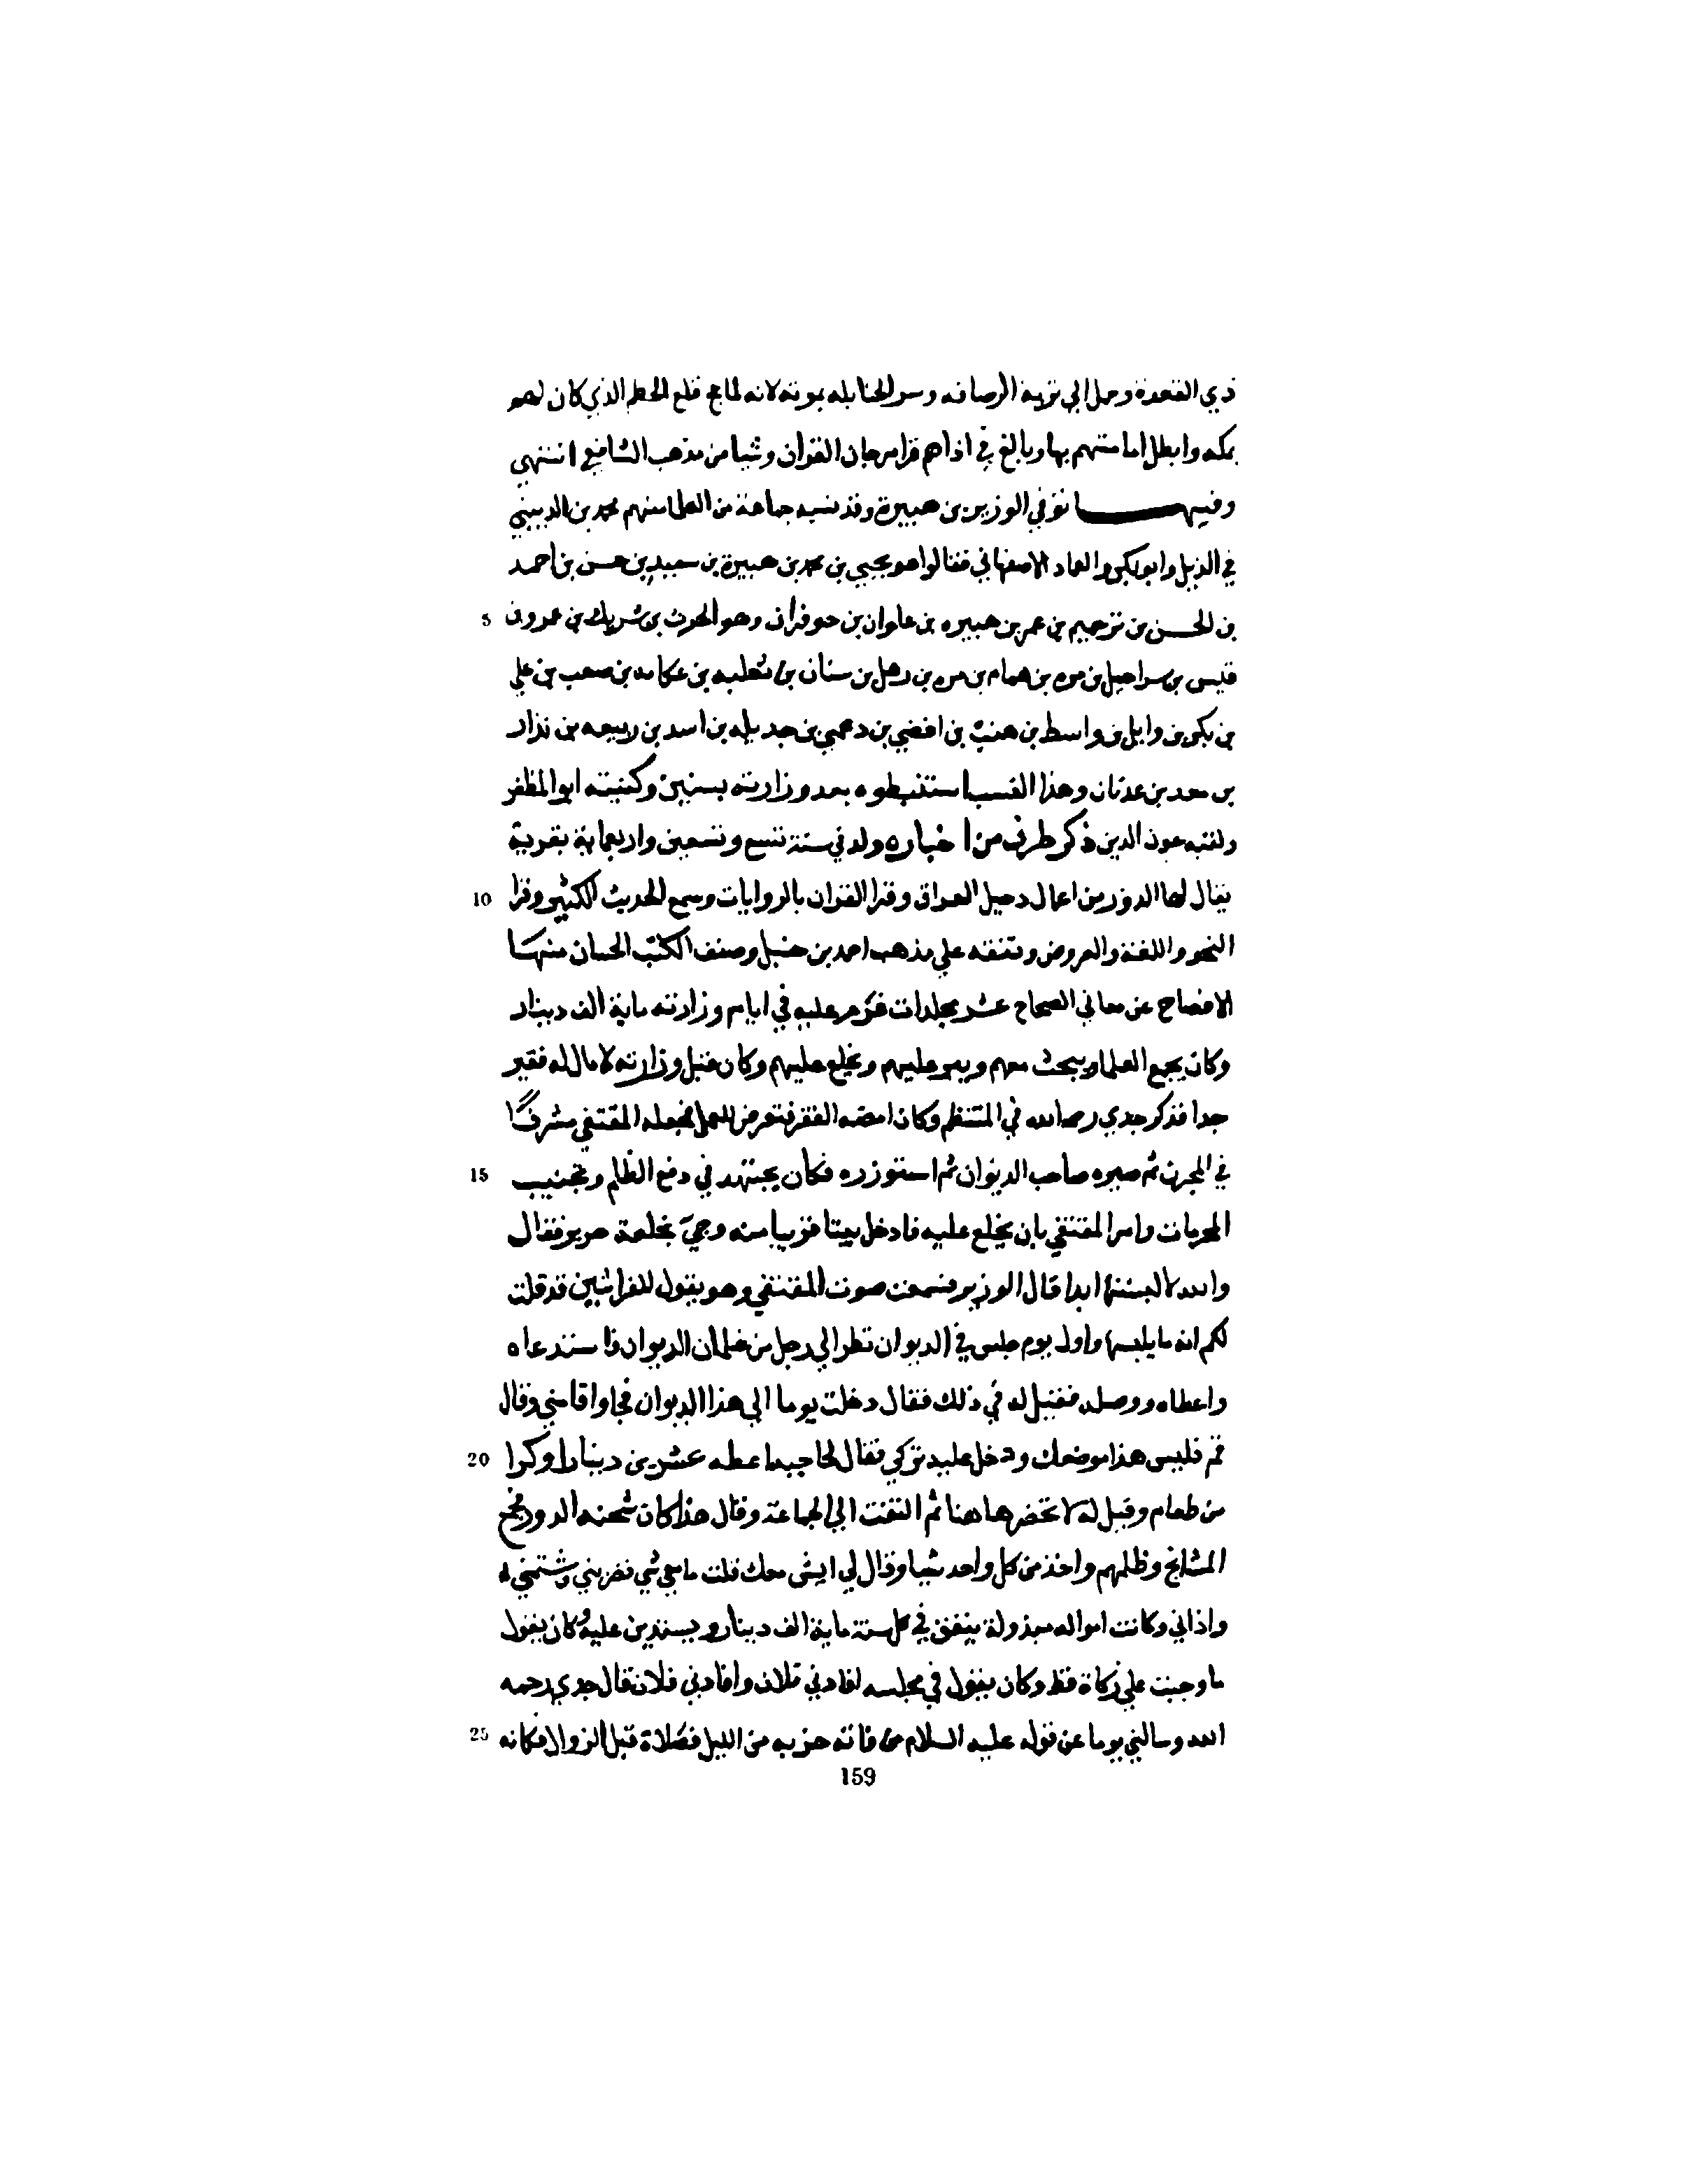 ذي القعدة وحمل الي تربة الرصافه وسر الحنابله بموته لانه لما حج قلع الحطم الذي كان لهم
بمكه وابطل امامتهم بها وبالغ في اذاهم قرا مرجان القران وشيا من مذهب الشافعي انتهى
وفيها توفي الوزير بن هبيرة وقد نسبه جماعة من العلما منهم محمد بن الدبيثي
في الذيل وابو بكر والعماد الاصفهاني فقالوا هو يحيي بن محمد بن هبيرة بن سعيد بن حسن بن احمد
بن الحسن بن جهم بن عمر بن هبيره بن علوان بن حوفزان وهو الحرث بن شريك بن عمرو بن
قيس بن سراحيل بن مره بن همام بن مره بن دهل بن سنان بن ثعلبه بن عكابه بن صعب بن علي
بن بكر بن وايل بن واسط بن هنب بن افصي بن دعمي بن جديله بن اسد بن ربيعه بن نزار
بن معد بن عدنان وهذا النسب استنبطوه بعد وزارته بسنين وكنيته ابو المظفر
ولقبه عون الدين ذكر طرف من اخباره ولد في سنة تسع وتسعين واربعماية بقرية
يقال لها الدور من اعمال دجيل العراق وقرا القران بالروايات وسمع الحديث الكثير وقرا
النحو واللغة والعروض وتفقه علي مذهب احمد بن حنبل وصنف الكتب الحسان منها
الافصاح عن معاني الصحاح عشر مجلدات غرم عليه في ايام وزارته ماية الف دينار
وكان يجمع العلما ويبحث معهم ويبر عليهم ويخلع عليهم وكان قبل وزارته لا مال له فقير
جدا فذكر جدي رحمه الله في المنتظم وكان امضه الفقر فتعرض للعمل فجعله المقتفي مشرفًا
في المخزن ثم صيره صاحب الديوان ثم استوزره فكان يجتهد في دفع الظلم وتجنيب
المحرمات وامر المقتفي بان يخلع عليه فادخل بيتا قريبا منه وجي بخلعة حرير فقال
والله لا لبستها ابدا قال الوزير فسمعت صوت المقتفي وهو يقول للفراشين قد قلت
لكم انه ما يلبسها واول يوم جلس في الديوان نظر الي رجل من غلمان الديوان فاستدعاه
واعطاه ووصله فقيل له في ذلك فقال دخلت يوما الي هذا الديوان فجا واقامني وقال
قم فليس هذا موضعك ودخل عليه تركي فقال لحاجبه اعطه عشرين دينارا وكرا
من طعام وقيل له لا تحضر هاهنا ثم التفت الي الجماعة وقال هذا كان شحنه الدور فجمع
المشايخ وظلمهم واخذ من كل واحد شيا وقال لي ايش معك قلت ما معي شي فضربني وشتمني
واذاني وكانت امواله مبذولة ينفق في كل سنة ماية الف دينار ويستدين عليه وكان يقول
ما وجبت علي زكاة قط وكان يقول في مجلسه افادني فلان وافادني فلان قال جدي رحمه
الله وسالني يوما عن قوله عليه السلام من فاته حزبه من الليل فصلاة قبل الزوال فكانه
5
10
15
20
25
159